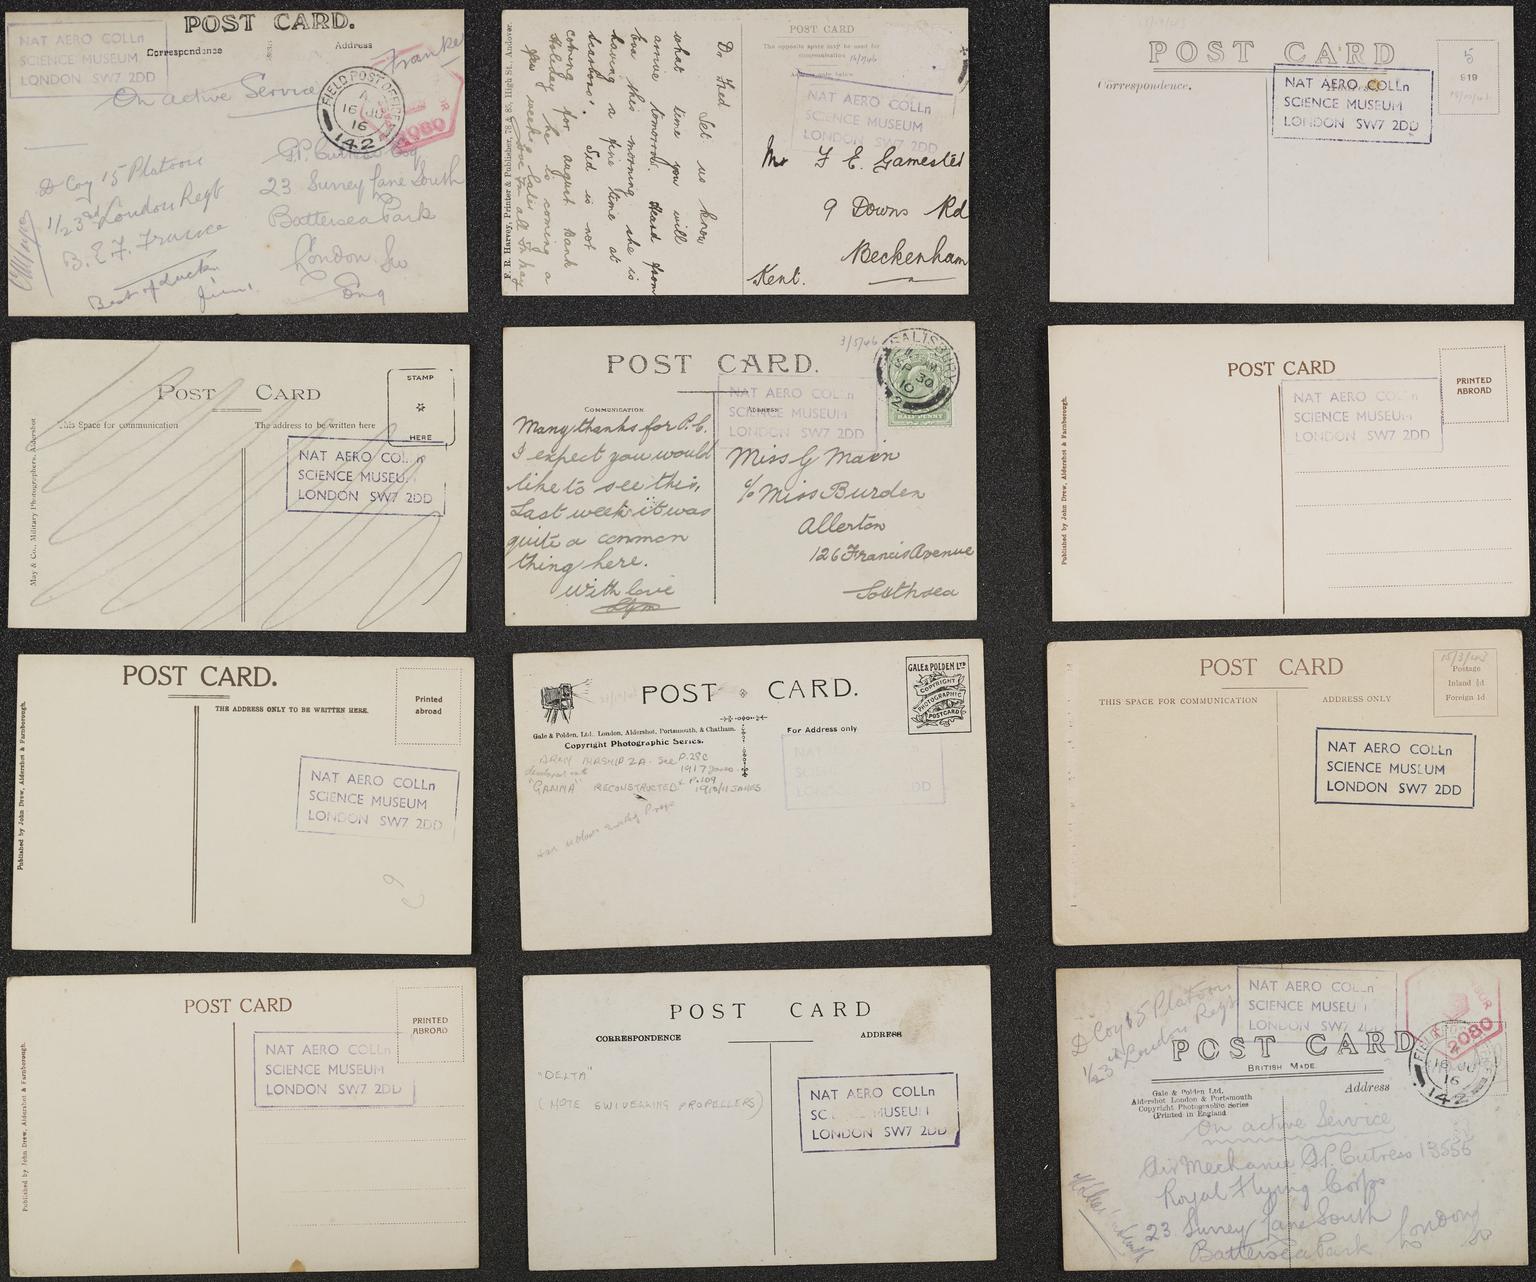 POST CARD.
NAT AERO COLLn
SCIENCE MUSEUM
LONDON SW7 2DD
Correspondence
Address
On active Service
FIELD POST OFFICE
16 JU
16
142
2080
D Coy 15 Platoon
1/23rd London Regt
B.E.F. France
Best of luck
Jim.
G.P. Cutress Esq
23 Surrey Lane South
Battersea Park
London Sw
Eng
F. E. Harvey, Printer & Publisher, 78 & 85, High St., Andover.
Dr Fred Let us know
what time you will
arrive tomorrow. Heard from
this morning she is
having a fine time at
Sid is not
coming for august Bank
Holiday he is coming a
few weeks later
POST CARD
The opposite space may be used for
communication
NAT AERO COLLn
SCIENCE MUSEUM
LONDON SW7 2DD
Mr F E Gamester
9 Downs Rd
Beckenham
Kent.
POST CARD
Correspondence.
NAT AERO COLLn
SCIENCE MUSEUM
LONDON SW7 2DD
5
919
POST CARD
STAMP
HERE
This Space for communication
The address to be written here
NAT AERO COLLn
SCIENCE MUSEUM
LONDON SW7 2DD
May & Co., Military Photographers, Aldershot
3/5/46
POST CARD.
COMMUNICATION
ADDRESS
NAT AERO COLLn
SCIENCE MUSEUM
LONDON SW7 2DD
SALISBURY
SP 30
10
2
HALF PENNY
Many thanks for P.C.
I expect you would
like to see this,
Last week it was
quite a common
thing here.
With love
Miss G Main
c/o Miss Burden
Allerton
126 Francis Avenue
Southsea
POST CARD
PRINTED
ABROAD
NAT AERO COLLn
SCIENCE MUSEUM
LONDON SW7 2DD
Published by John Drew, Aldershot & Farnborough.
POST CARD.
THE ADDRESS ONLY TO BE WRITTEN HERE.
Printed
abroad
NAT AERO COLLn
SCIENCE MUSEUM
LONDON SW7 2DD
Published by John Drew, Aldershot & Farnborough.
POST CARD.
GALE & POLDEN LTD
COPYRIGHT
PHOTOGRAPHIC
POSTCARD
Gale & Polden, Ltd. London, Aldershot, Portsmouth, & Chatham.
Copyright Photographic Series.
For Address only
ARMY AIRSHIP 2A. See P.28C
1917 Janes
"GAMMA" RECONSTRUCTED P.109
1910/11 JANES
NAT AERO COLLn
SCIENCE MUSEUM
LONDON SW7 2DD
POST CARD
15/3/43
Postage
Inland ½d
Foreign 1d
THIS SPACE FOR COMMUNICATION
ADDRESS ONLY
NAT AERO COLLn
SCIENCE MUSEUM
LONDON SW7 2DD
POST CARD
PRINTED
ABROAD
NAT AERO COLLn
SCIENCE MUSEUM
LONDON SW7 2DD
Published by John Drew, Aldershot & Farnborough.
POST CARD
CORRESPONDENCE
ADDRESS
"DELTA"
(NOTE SWIVELLING PROPELLERS)
NAT AERO COLLn
SCIENCE MUSEUM
LONDON SW7 2DD
D Coy 15 Platoon
1/23rd London Regt
NAT AERO COLLn
SCIENCE MUSEUM
LONDON SW7 2DD
POST CARD
BRITISH MADE.
Gale & Polden Ltd.
Aldershot London & Portsmouth
Copyright Photographic Series
(Printed in England
Address
2080
16 JU
16
142
On active Service
Air Mechanic G.P. Cutress 13556
Royal Flying Corps
23 Surrey Lane South
Battersea Park London